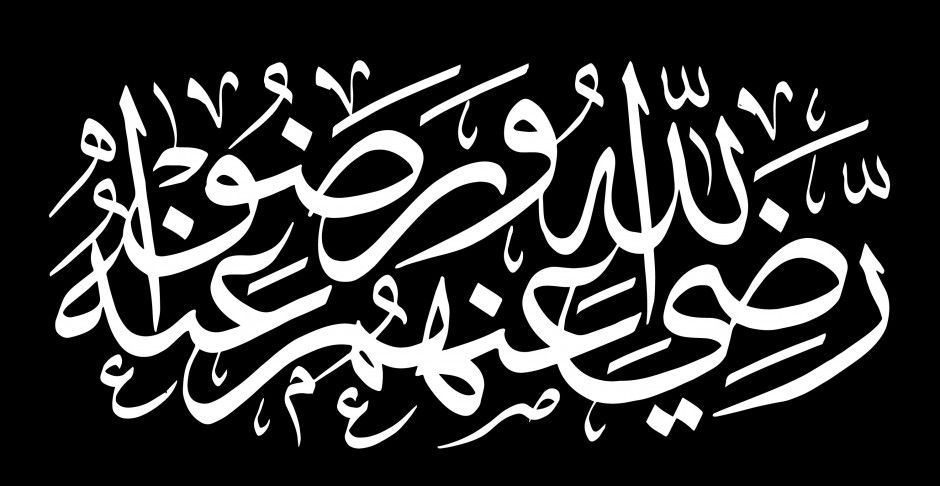 رَّضِيَ اللّٰهُ عَنْهُمْ وَرَضُوْا عَنْهُ